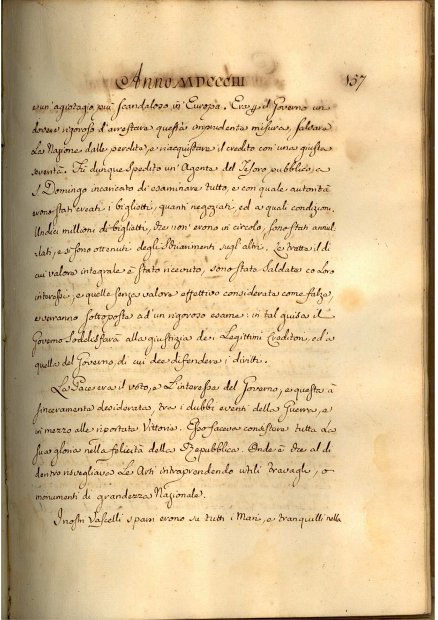 ANNO MDCCCIII 157
e un'agiotagio più scandaloso in Europa. Era p il Governo un
dovere rigoroso d'arrestare questa imprudenza misura, salvare
La Nazione dalle perdite, e riacquistare il credito con una giusta
severità. Fù dunque spedito un'Agente del Tesoro pubblico, a
S. Domingo incaricato di esaminare tutto, e con quale autorità
erono stati creati i biglietti, quanti negoziati, ed a quali condizioni.
Undici milioni di biglietti, che non erono in circolo, sono stati annul
lati, e si sono ottenuti degli schiarimenti sugl'altri. Le tratte il di
cui valore integrale è stato ricevuto, sono state saldate co Loro
interessi, e quelle senza valore effettivo considerate come false,
e verranno sottoposte ad un rigoroso esame: in tal guisa il
Governo Soddisfarà alla giustizia de Legittimi Creditori, ed a
quella del Governo, di cui dee difendere i diritti.
La Pace era il voto, e L'interesse del Governo, e questa à
sinceramente desiderata, tra i dubbi eventi della Guerra, e
in mezzo alle riportate Vittorie. Esso faceva consistere tutta La
sua gloria nella felicità della Repubblica. Onde è che al di
dentro risvegliava Le Arti intraprendendo utili travagli, e
monumenti di grandezza Nazionale.
I nostri Vascelli sparsi erono su tutti i Mari, e tranquilli nella